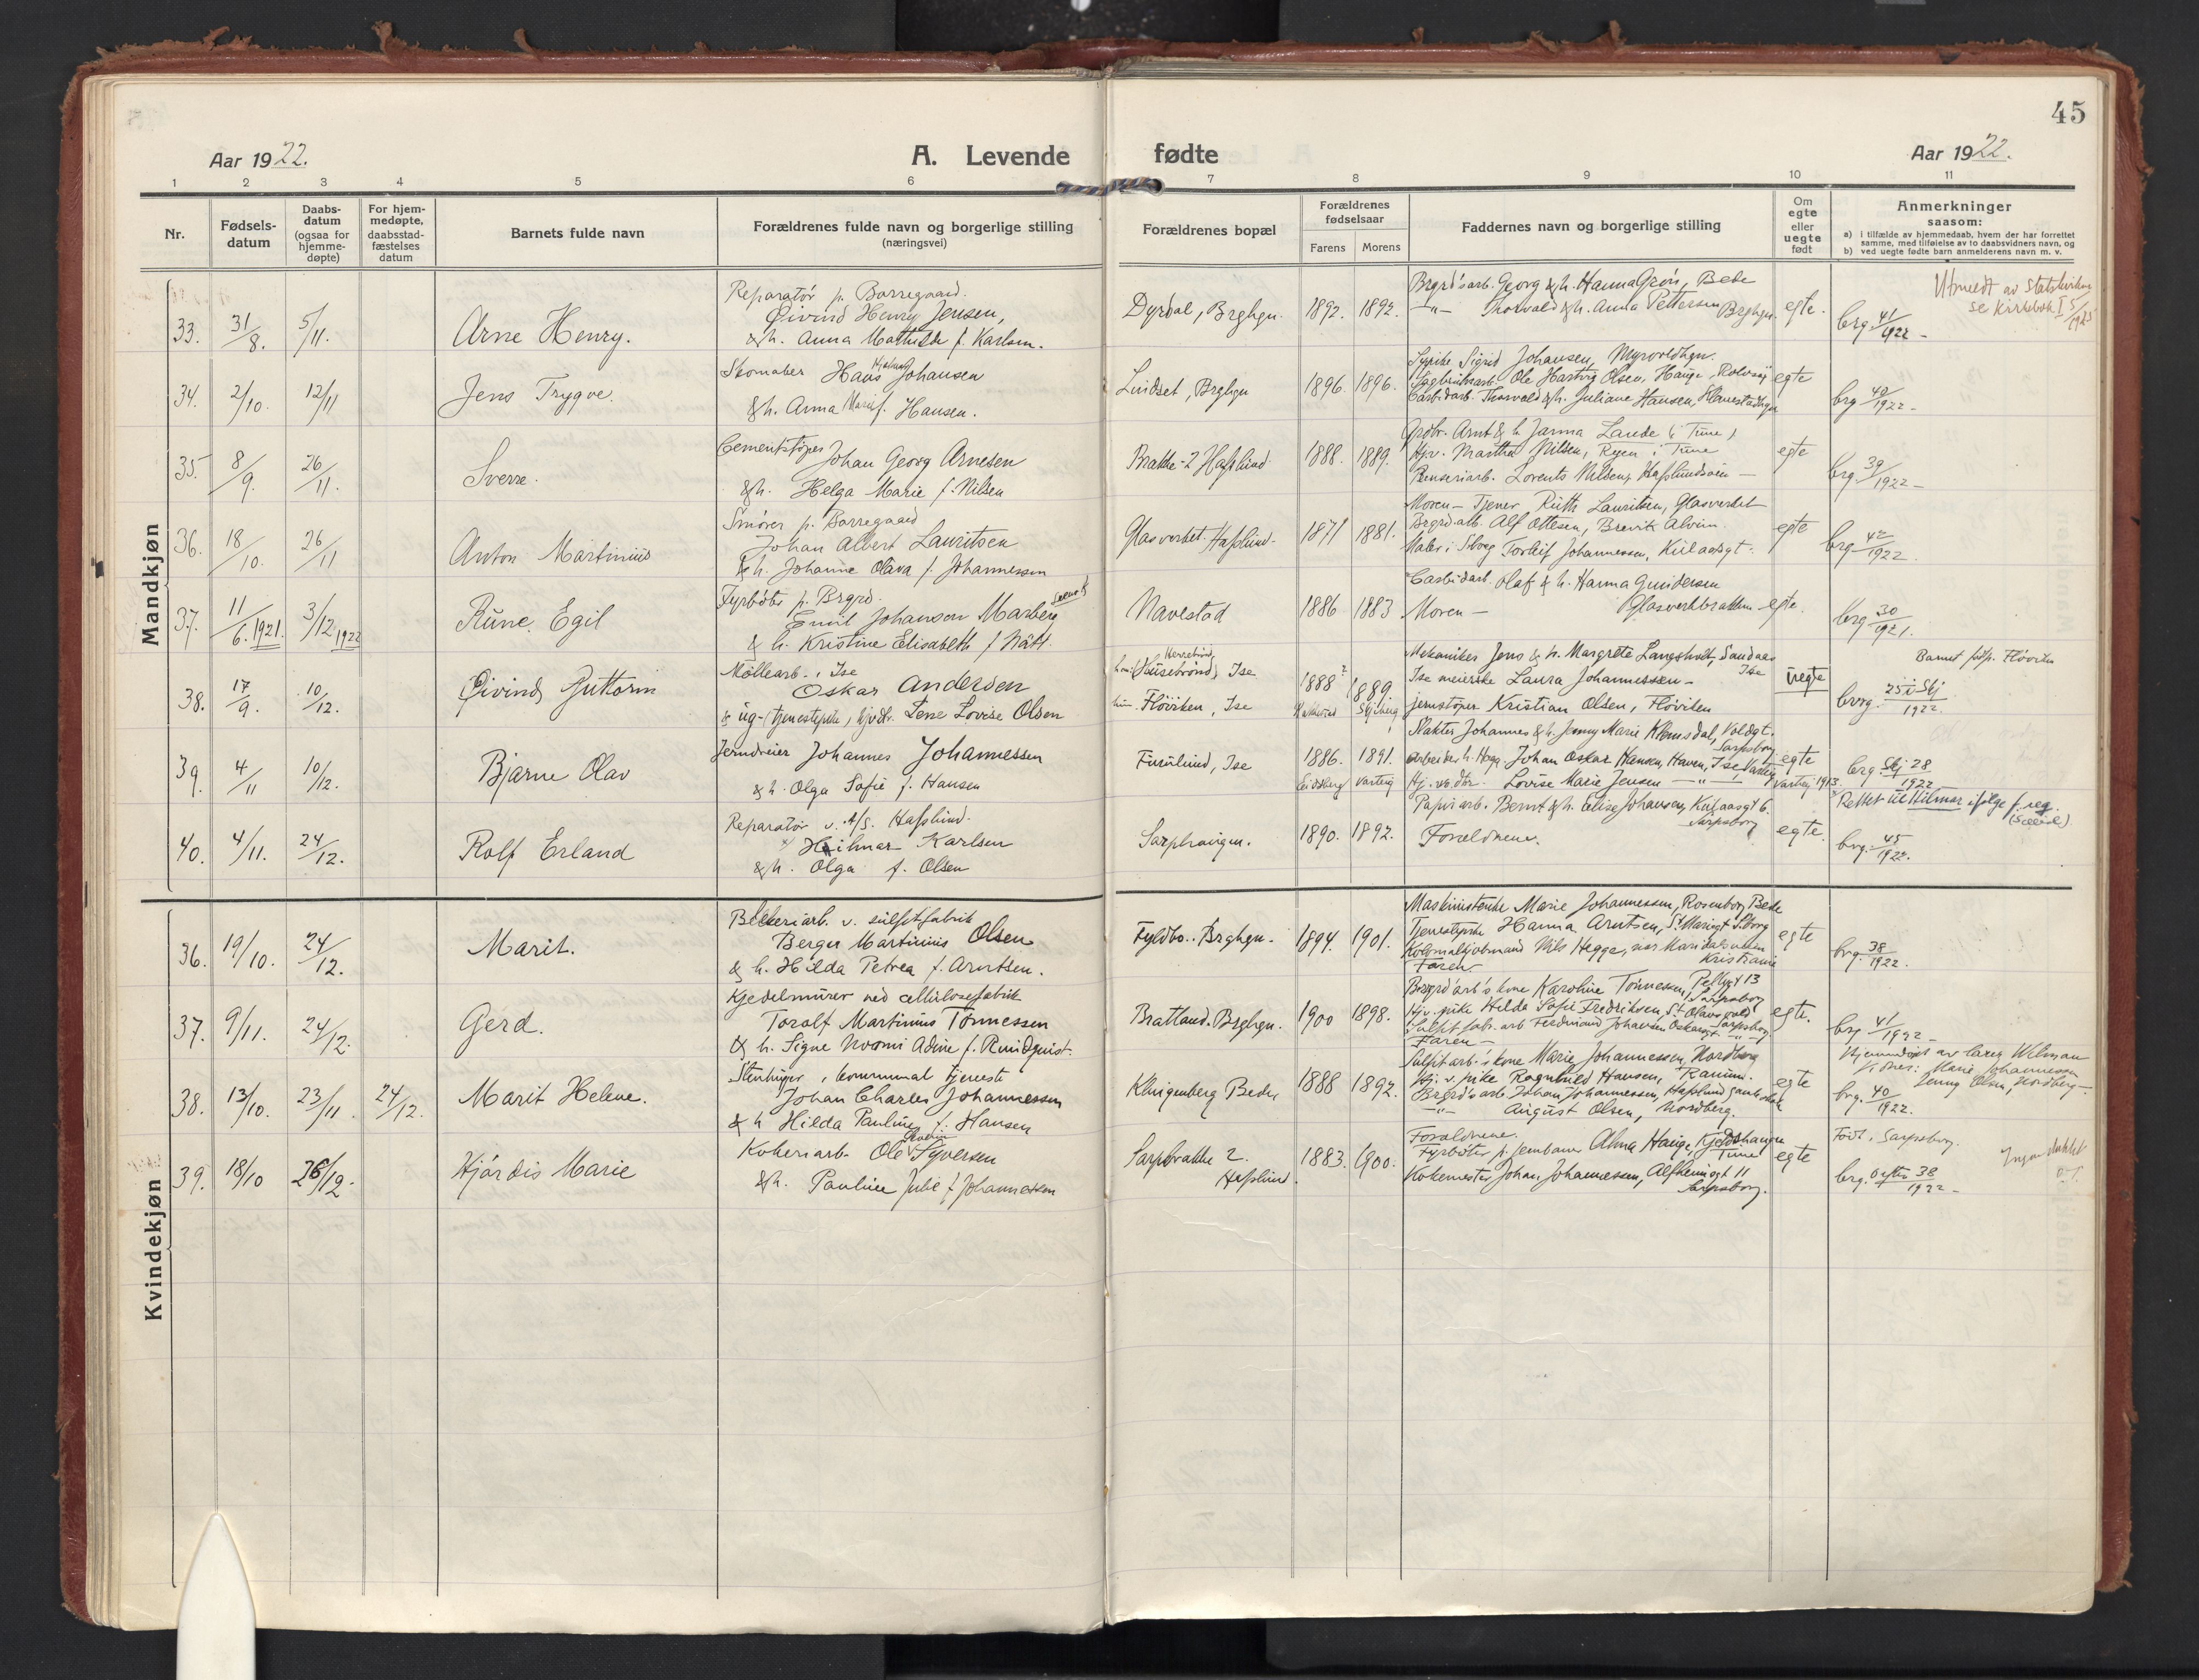 45
Aar 1922.
A. Levende
fødte
Aar 1922.
1 2 3 4 5 6 7 8 9 10 11
Nr.
Fødsels-
datum
Daabs-
datum
(ogsaa for
hjemme-
døpte)
For hjem-
medøpte,
daabsstad-
fæstelses
datum
Barnets fulde navn
Forældrenes fulde navn og borgerlige stilling
(næringsvei)
Forældrenes bopæl
Forældrenes
fødselsaar
Farens Morens
Faddernes navn og borgerlige stilling
Om
egte
eller
uegte
født
Anmerkninger
saasom:
a) i tilfælde av hjemmedaab, hvem der har forrettet
samme, med tilføielse av to daabsvidners navn, og
b) ved uegte fødte barn anmelderens navn m. v.
Mandkjøn
33. 31/8. 5/11. Arne Henry.
Reparatør p. Borregaard.
Øivind Henry Jensen,
& h. Anna Mathilde f. Karlsen.
Dyrdal, Brghgn. 1892. 1892.
Brgrd's arb. Georg & h. Hanna Grøn, Bede
-"- Thorvald & h. Anna Pettersen Brghgn.
egte.
brg. 41/1922 -
Utmeldt av Statskirken
se Kirkebok I 5/1925
34. 2/10. 12/11 Jens Trygve.
Skomaker Hans Hjalmar Johansen
& h. Anna Marie f. Hansen.
Lindset, Brghgn 1896. 1896.
Sypike Sigrid Johansen, Myrvoldhgn.
Sagbruksarb. Ole Hartvig Olsen, Hauge, Rolvsøy
Carbidarb. Thorvald & h. Juliane Hansen,
egte
brg. 40/1922 -
35. 8/9. 26/11. Sverre.
Cementstøper Johan Georg Arnesen
& h. Helga Marie f. Nilsen
Brække-2 Hafslund 1888. 1889.
Grdbr. Arnt & h. Janna Lande (i Tune)
Hjv. Martha Nilsen, Ryen i Tune
Renseriarb. Lorents Nilsen, Hafslundsøen -
egte
brg. 39/1922 -
36. 18/10. 26/11 Anton Martinius
Smører p. Borregaard
Johan Albert Lauritsen
& h. Johanne Olava f. Johannessen
Glasverket. Hafslund. 1871 1881.
Moren - Tjener Ruth Lauritsen, Glasverket
Brgrd arb. Alf Ottesen, Brevik Alvim.
Maler i Sborg Torleif Johannessen, Kirlaasgt.
egte
brg. 42/1922.
37. 11/6.1921. 3/12 1922 Rune Egil
Fyrbøter p. Brgrd.
Emil Johanson Marberg
& h. Kristine Elisabeth f Nätt.
Navestad 1886 1883
Carbidarb. Olaf & h. Hanna Gundersen
Moren - Glasverkbrakken
egte.
brg 30/1921.
38. 17/9. 10/12. Øivind Guttorm
Møllearb. i Ise
Oskar Andersen
& ug. tjenestepike, hjv. dtr. Lene Lovise Olsen
Ise
Fløviken, Ise 1888 1889. Skjeberg
Mekaniker Jens & h. Margrete Langsholt, Sandaas Ise
Ise meierske Laura Johannessen -
jernstøper Kristian Olsen, Fløviken
uegte
Barnet Fløviken
borg. 25 i Skj/1922.
39. 4/11 10/12. Bjarne Olav
Jerndreier Johannes Johannessen
& h. Olga Sofie f. Hansen
Furulund, Ise 1886. 1891. Eidsberg Varteig
Slakter Johannes & h. Jenny Marie Klemsdal, Voldgt. Sarpsborg
arbeider h. Høgg Johan Oskar Hansen, Haven, Ise Varteig
Hj. v. dtr. Lovise Marie Jensen -"-
egte
Varteig 1913.
brg. Skj 28/1922
40. 4/11. 24/12. Rolf Erland
Reparatør v. A/S. Hafslund.
Hilmar Karlsen
& h. Olga f. Olsen
Sarpsvingen. 1890. 1892.
Papirarb. Bernt & h. Elise Johansen, Kirlaasgt 6. Sarpsborg
Forældrene.
egte.
Rettet til Hilmar ifølge f. reg.
brg. 45/1922.
Kvindekjøn
36. 19/10. 24/12. Marit.
Blekeriarb. v. sulfitfabrik
Berger Martinius Olsen
& h. Hilda Petrea f. Arntsen.
Fyldbo. Brghgn. 1894. 1901.
Maskinistenke Marie Johannessen, Rosenborg Bede
Tjenestepike Hanna Arntsen, St. Mariegt Sborg
Kolonialhjelpmand Nils Hegge, Maridalsveien Kristiania
Faren
egte
brg. 38/1922.
37. 9/11. 24/12. Gerd.
Kjedelmurer ved cellulosefabrik
Toralf Martinius Tønnessen
& h. Signe Noomi Adine f. Rundquist.
Bratland. Brghgn. 1900 1898.
Brgrd arb's kone Karoline Tønnesen, Pellygt 13 Sarpsborg
Hjv. pike Hilda Sofie Fredriksen, St. Olavs vold
Sulfit fabr. arb Ferdinand Johansen Oskarsgt Sarpsborg.
Faren -
egte.
brg 41/1922 -
38. 13/10. 23/11 24/12. Marit Helene.
Stenhuger i kommunal tjeneste
Johan Charles Johannessen
& h Hilda Pauline f. Hansen
Klingenberg Bede 1888 1892.
Sulfitarb's kone Marie Johannessen, Nordberg
Hj. v. pike Ragnhild Hansen, Ranum.
Brgrd's arb. Johan Johannessen, Hafslund gamle skole
-"- August Olsen, Nordberg.
egte
Hjemmedøpt av lærer Wilman
Vidner: Marie Johannessen
Jenny Olsen, Nordberg -
brg. 40/1922.
39. 18/10 26/12. Hjørdis Marie
Kokeriarb. Ole Syversen
& h. Pauline Julie f. Johannessen
Sarpbrakke 2. Hafslund. 1883. 1900.
Forældrene.
Fyrbøter p. jernbanen Alma Hauge, Tune
Kokemester Johan Johannessen, Alfheimgt 11 Sarpsborg.
egte
Født i Sarpsborg.
brg. 38/1922 -